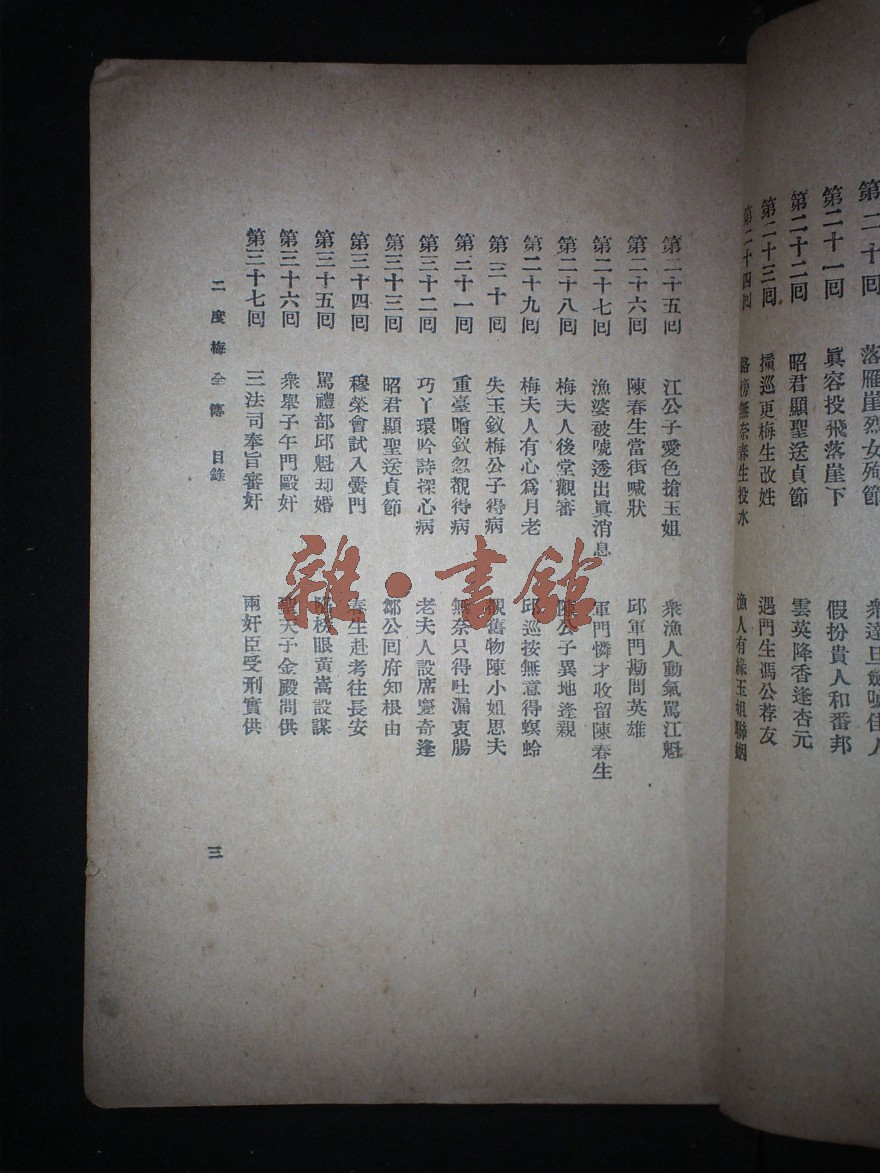 第二十回 落雁崖烈女殉節
第二十一回 眞容投飛落崖下 假扮貴人和番邦
第二十二回 昭君顯聖送貞節 雲英降香逢杏元
第二十三回 擕巡更梅生改姓 遇門生馮公荐友
第二十四回 路傍無奈春生投水 漁人有緣玉姐聯姻
第二十五回 江公子愛色搶玉姐 衆漁人動氣罵江魁
第二十六回 陳春生當街喊狀 邱軍門勘問英雄
第二十七回 漁婆被唬透出眞消息 軍門憐才收留陳春生
第二十八回 梅夫人後堂觀審 陳公子異地逢親
第二十九回 梅夫人有心爲月老 邱巡按無意得螟蛉
第三十回 失玉釵梅公子得病 覩舊物陳小姐思夫
第三十一回 重臺贈釵忽覩得病 無奈只得吐漏衷腸
第三十二回 巧丫環吟詩探心病 老夫人設席慶奇逢
第三十三回 昭君顯聖送貞節 鄒公回府知根由
第三十四回 穆榮會試入黌門 春生赴考往長安
第三十五回 罵禮部邱魁却婚 隔榜眼黃嵩設謀
第三十六回 衆舉子午門毆奸 聖天子金殿問供
第三十七回 三法司奉旨審奸 兩奸臣受刑實供
二度梅全傳 目錄 三
雜·書館